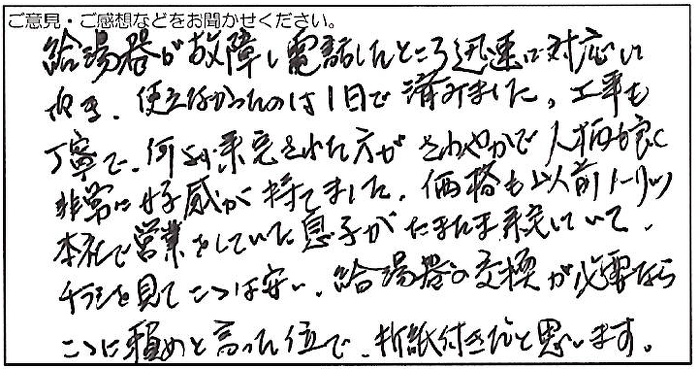 ご意見・ご感想などをお聞かせください。
給湯器が故障し電話したところ迅速に対応して
頂き、使えなかったのは1日で済みました。工事も
丁寧で、何より来宅された方がさわやかで人柄が良く
非常に好感が持てました。価格も以前ノーリツ
本社で営業をしていた息子がたまたま来宅していて、
チラシを見てこっは安い、給湯器の交換が必要なら
こっに頼めと言った位で、折紙付きだと思います。